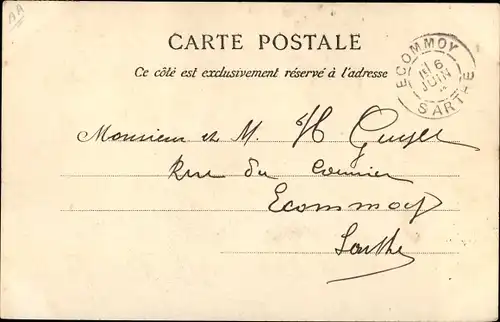 AA
CARTE POSTALE
Ce côté est exclusivement réservé à l'adresse
ECOMMOY
6
JUIN
SARTHE
Monsieur et M.
Rue du
Ecommoy
Sarthe